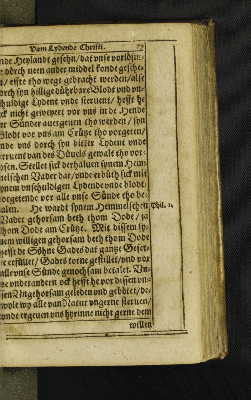 Vam Lydende Christi. 79
nde Heylandt geschn/dat vnse vorlösin⸗
e dörch neen ander middel konde geschee
t/ effte tho wege gebracht werden/alse
dörch syn hillige dührbare Blodt vnd vn⸗
schüldige Lydent vnde steruent/ hefft he
ck nicht geweyert vor vns in de Hende
er Sünder auergeuen tho werden/ syn
Blodt vor vns am Crütze tho vorgeten/
nde vns dorch syn bitter Lydent vnde
teruent van des Düuels gewalt tho vor⸗
ösen. Stellet sick derhaluen synem Hem⸗
melschen Vader dar/vnde erbüth sick mit
ynem vnschüldigen Lydende vnde blodt⸗
vorgetende vor alle vnse Sünde tho be⸗
alen. He wardt synem Hemmelschen Phil. 2.
Vader gehorsam beth thom Dode/ ja
thom Dode am Crütze. Mit dissem sy⸗
nem willigen gehorsam beth thom Dode
hefft de Söhne Gades dat gantze Geset⸗
te erfüllet/ Gades torne gestillet/vnd vor
alle vnse Sünde genochsam betalet. Vn⸗
se vnderanderen ock hefft he vor dissen vn⸗
sen Vngehorsam geleden vnd gebötet/ de⸗
wole wy alle van Natur vngerne steruen/
vnde ergeuen vns hyrinne nicht gerne dem
willen